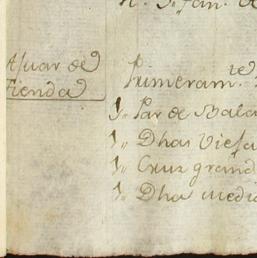 Ajuar de
tienda
Primeram.te
1,, Par de Bala
1,, Dhas Vieja
1,, Cruz grand
1,, Dha media